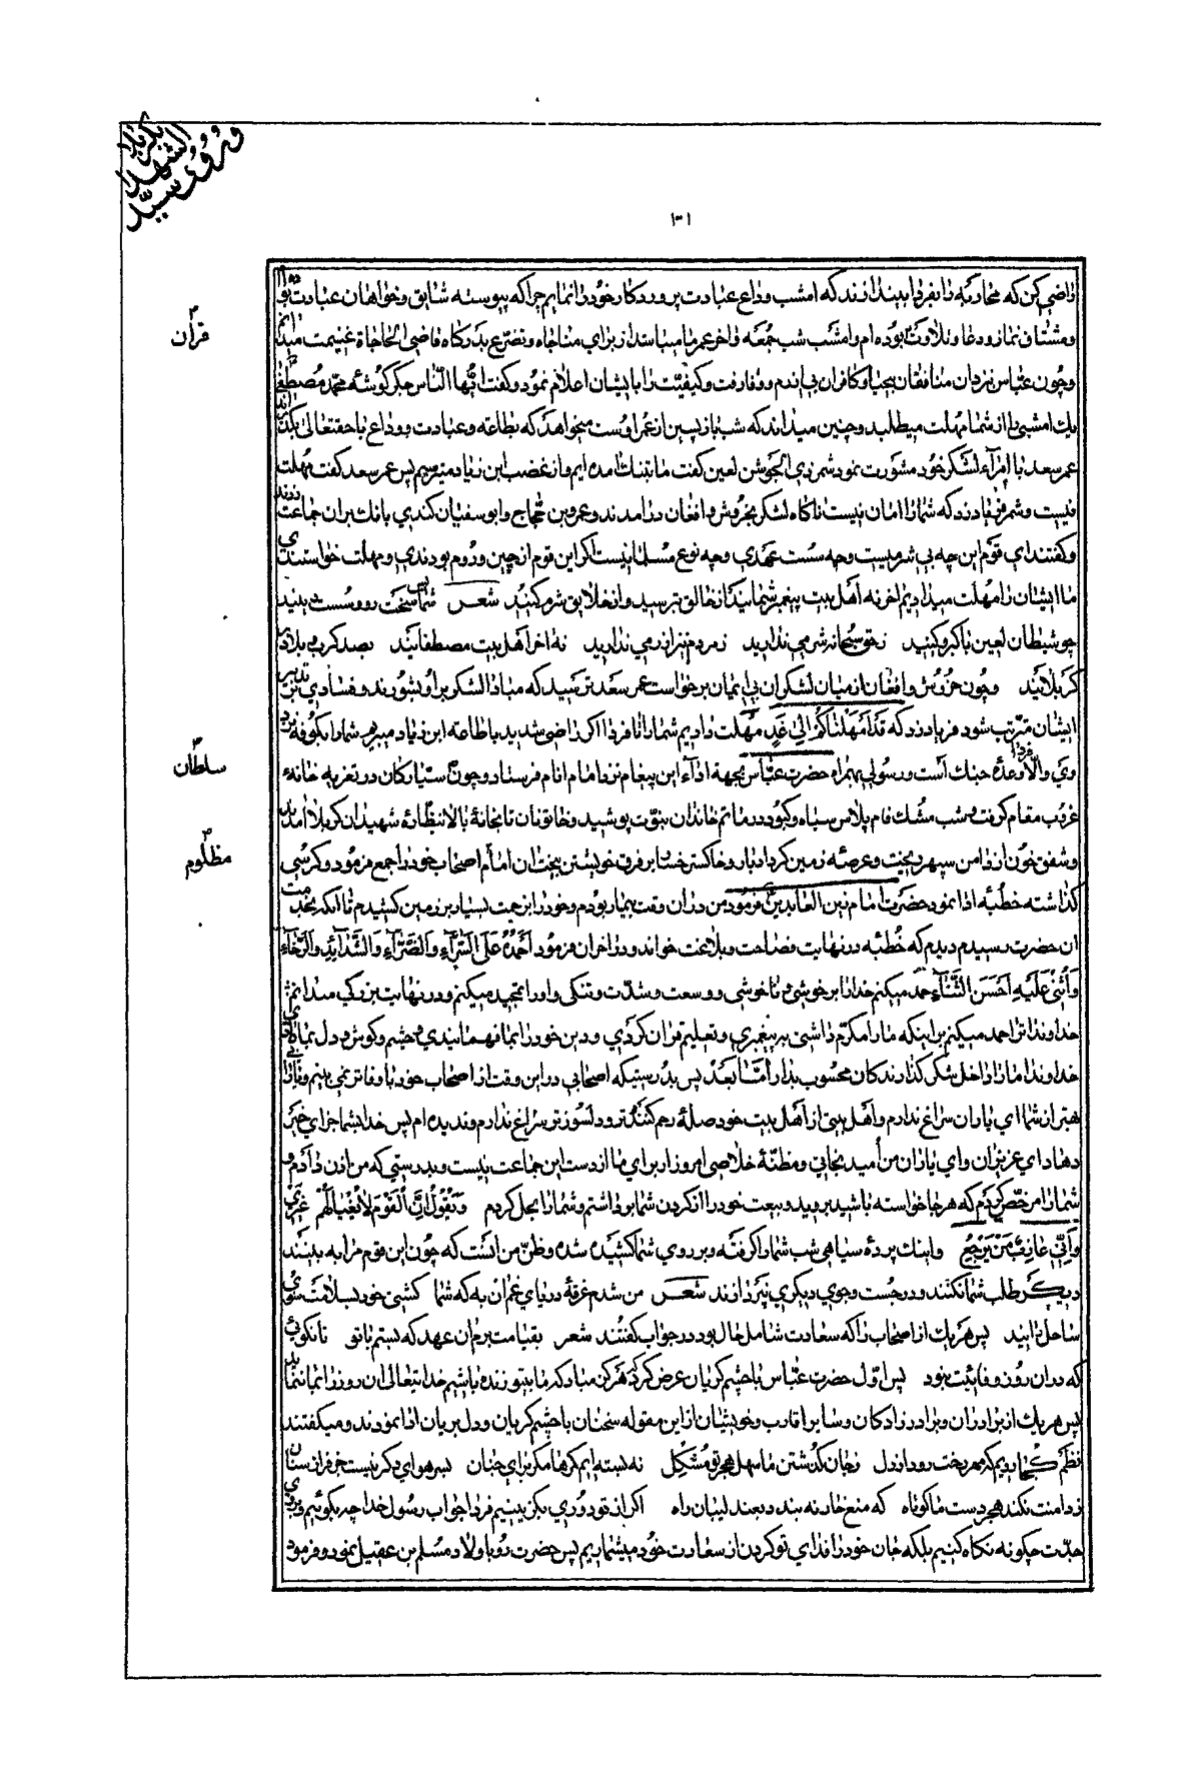 ورود سید
الشهدا
بکربلا
۱۰۱
راضی کن که محاربه را بفردا بیندازند که امشب وداع عبادت پروردکار خود را نمایم چرا که پیوسته شایق و خواهان عبادت او
و مشتاق نماز و دعا و تلاوت بوده ام و امشب شب جمعه و اخر عمر ما میباشد از برای مناجاه و تضرع بدرکاه قاضی الحاجاة غنیمت میدانم
قرآن
و چون عباس نزد ان منافقان بیحیا و کافران بی ازرم و وفا رفت و کیفیت را با یشان اعلام نمود و کفت ایها الناس جکر کوشهٔ محمد مصطفی
یك امشبی را از شما مهلت میطلبد و چنین میداند که شب باز پسین از عمر اوست میخواهد که بطاعه و عبادت و وداع با حقتعالی بکذراند
عمر سعد با امراء لشکر خود مشورت نمود شمر ذی الجوشن لعین کفت ما بتنك امده ایم و از غضب ابن زیاد میترسیم پس عمر سعد کفت مهلت
نیست و شمر فریاد زد که شما را امان نیست ناکاه لشکر بخروش و افغان درامدند و عمرو بن حجاج و ابو سفیان کندی بانك بران جماعت زدند
و کفتند ای قوم این چه بی شرمیست و چه سست عهدی و چه نوع مسلمانیست اکر این قوم از چین و روم بودندی و مهلت خواستندی
ما ایشان را مهلت میدادیم اخر نه اهل بیت پیغمبر شمایند از خالق بترسید و از خلایق شرم کنید شعر شما بس سخت رو و سست دینید
چو شیطان لعین با کبر و کینید ز حق سبحانه شرمی ندارید ز مردم نیز ازرمی ندارید نه اخر اهل بیت مصطفایند بصد کرب و بلا در
کربلایند و چون خروش و افغان از میان لشکران بی ایمان برخواست عمر سعد ترسید که مبادا لشکر بر او بشورند و فسادی بر تدبیر
ایشان مترتب شود فریاد زد که قد امهلناکم الی غد مهلت دادیم شما را تا فردا اکر راضی شدید باطاعه ابن زیاد میبریم شما را بکوفه نزد
وی والا فردا وعدهٔ جنك است و رسولی بهمراه حضرت عباس بجهة اداء این پیغام نزد امام انام فرستاد و چون ستیارکان در تعزیه خانهٔ
سلطان
غرب مقام کرفت و شب مشك فام پلاس سیاه و کبود در ماتم خاندان نبوت پوشید و خاتونان تابخانهٔ بالا نظارهٔ شهیدان کربلا امدند
و شفق خون از دامن سپهر ریخت و عرصهٔ زمین کرد ادبار و خاکستر خشت بر فرق خویشتن بیخت ان امام اصحاب خود را جمع فرمود و کرسی
مظلوم
کذاشته خطبه ادا نمود حضرت امام زین العابدین فرمود من دران وقت بیمار بودم و خود را بزحمت بسیار بر زمین کشیدم تا انکه بخدمت
ان حضرت رسیدم دیدم که خطبه در نهایت فصاحت و بلاغت خواند و در اخران فرمود احمده علی السراء و الضراء و الشدائد و الرخاء
و اثنی علیه احسن الثناء حمد میکنم خدا را بر خوشی و نا خوشی و وسعت و شدت و تنکی و او را تمجید میکنم و در نهایت بزرکی میدانمش
خداوندا ترا حمد میکنم بر اینکه ما را مکرم داشتی به پیغمبری و تعلیم قران کردی و دین خود را بما فهمانیدی و چشم و کوش و دل بما دادی
خداوندا ما را داخل شکر کذارندکان محسوب بدار اما بعد پس بدرستیکه اصحابی در این وقت از اصحاب خود با وفاتر نمی بینم و یارانی
بهتر از شما ای یاران سراغ ندارم و اهل بیتی از اهل بیت خود صلهٔ رحم کننده تر و دلسوزتر سراغ ندارم و ندیده ام پس خدا بشما جزای خیر
دهاد ای عزیزان و ای یاران من امید نجاتی و مظنهٔ خلاصی امروز از برای ما از دست این جماعت نیست و بدرستی که من اذن دادم و
شما را مرخص کردم که هر جا خواسته باشید بروید و بیعت خود را از کردن شما برداشتم و شما را بحل کردم و یقول ان القوم لا یغیالهم غیری
و انی عازف من یرجع و اینك پردهٔ سیاهی شب شما را کرفته و بر روی شما کشیده شده و ظن من انست که چون این قوم مرا به بینند
دیکر طلب شما نکنند و در جست و جوی دیکری نپردازند شعر من شدم غرقهٔ دریای غم ان به که شما کشتی خود بسلامت سوی
ساحل رانید پس هر یك از اصحاب را که سعادت شامل حال بود در جواب کفتند شعر بقیامت برم ان عهد که بستم با تو تا نکوئی
که دران روز وفائیت نبود پس اول حضرت عباس با چشم کریان عرض کرد که هرکز مباد که ما بیتو زنده باشیم خدایتعالی ان روز را بما ننماید
پس هر یك از برادران و برادرزادکان و سایر اقارب و خویشان از این مقوله سخنان با چشم کریان و دل بریان ادا نمودند و میکفتند
نظم کجا رویم که مهر رخت رود از دل ز جان کذشتن ما سهل و هجر تو مشکل نه بسته ایم کمرها مکر برای جنان بسر هوای دکر نیست جز فراز سنان
ز دامنت نکند هجر دست ما کوتاه که منع خار نه بندد بعند لیبان راه اکر از تو دوری بکزینیم فردا جواب رسول خدا چه بکوئیم و بروی
جدت چکونه نکاه کنیم بلکه جان خود را فدای تو کردن از سعادت خود میشماریم پس حضرت رو با ولاد مسلم بن عقیل نمود و فرمود